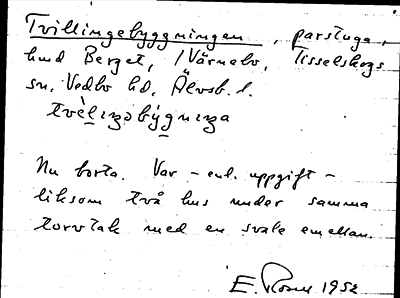 Tvillingebyggningen, parstuga,
hmd Berget, i Värnebo, Tisselskogs
sn, Vedbo hd, Älvsb. l.
tvèlıŋəbýgnıŋa
Nu borta. Var – enl. uppgift –
liksom två hus under samma
torvtak med en svale emellan.
E. Rosen 1952